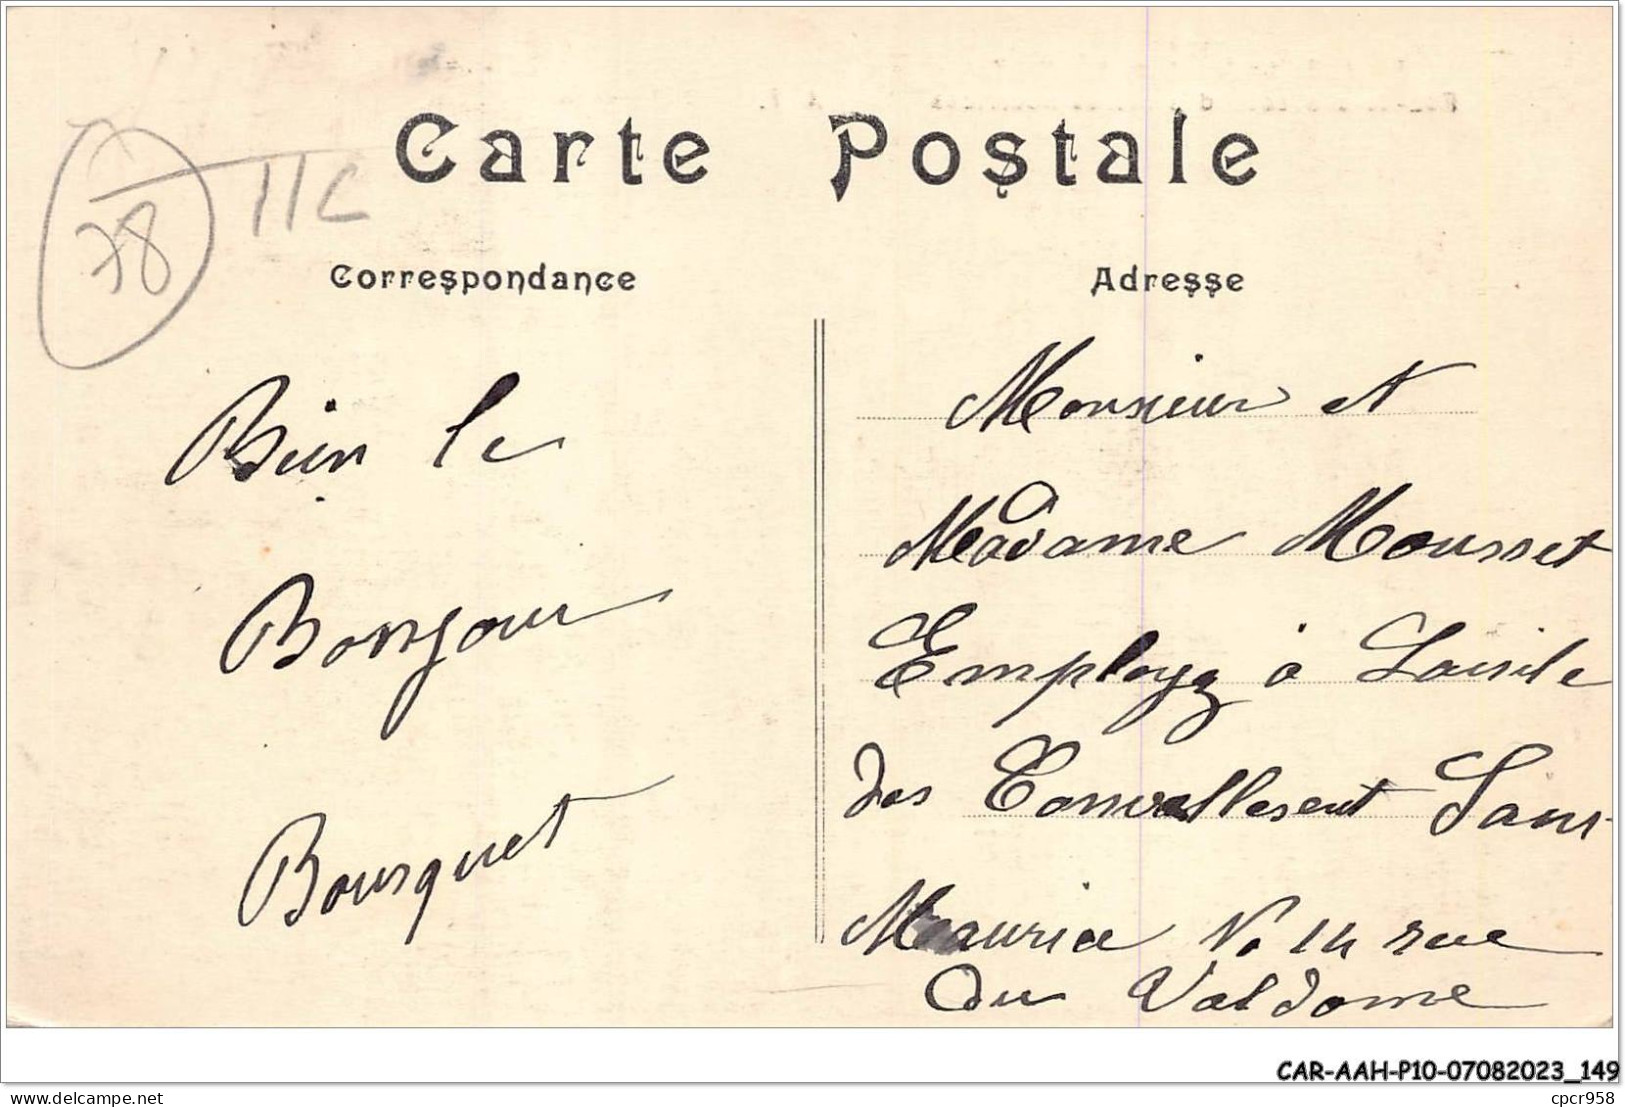 Carte Postale
78 11C
Correspondance
Bien le
Bonjour
Bousquet
Adresse
Monsieur et
Madame Mousset
Employz à Lasile
des Convallesent Saint
Maurice No 14 rue
du Valdome
CAR-AAH-P10-07082023_149
delcampe.net
cpcr958